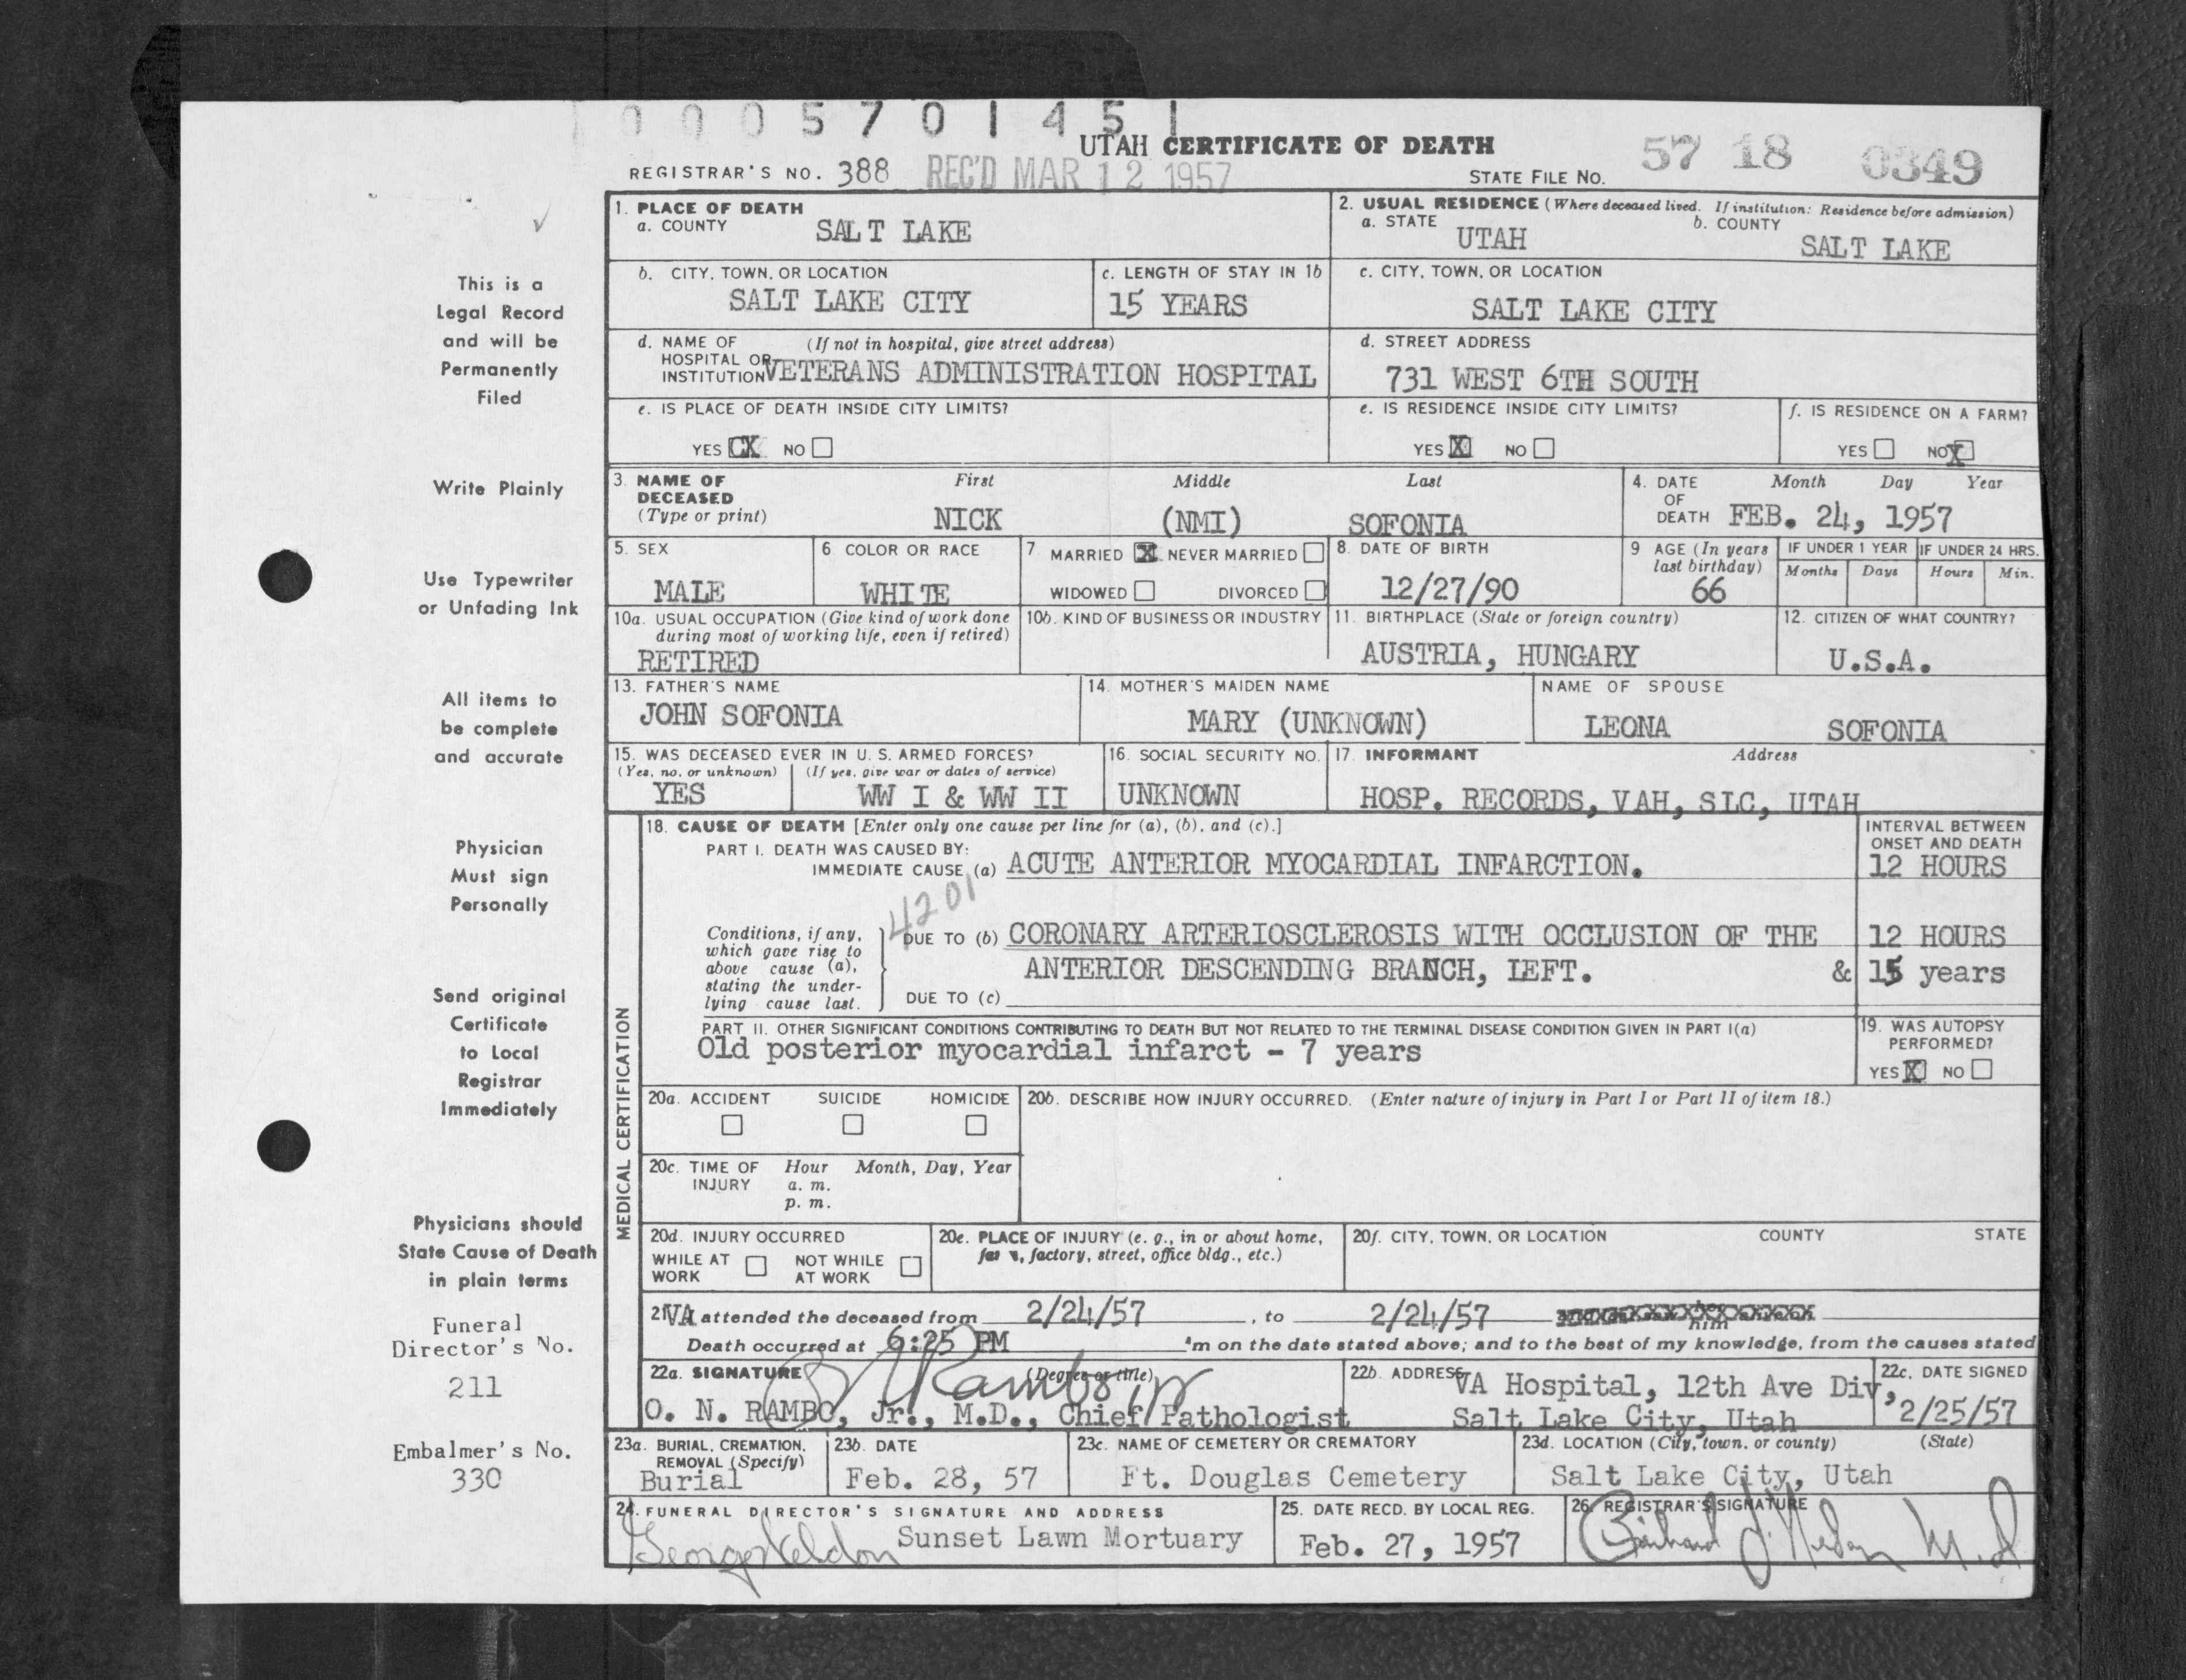 0 0 0 5 7 0 1 4 5 1
UTAH CERTIFICATE OF DEATH
REGISTRAR'S NO. 388 REC'D MAR 12 1957
STATE FILE NO. 57 18 0349
This is a
Legal Record
and will be
Permanently
Filed
Write Plainly
Use Typewriter
or Unfading Ink
All items to
be complete
and accurate
Physician
Must sign
Personally
Send original
Certificate
to Local
Registrar
Immediately
Physicians should
State Cause of Death
in plain terms
Funeral
Director's No.
211
Embalmer's No.
330
1. PLACE OF DEATH
a. COUNTY SALT LAKE
2. USUAL RESIDENCE (Where deceased lived. If institution: Residence before admission)
a. STATE UTAH b. COUNTY SALT LAKE
b. CITY, TOWN, OR LOCATION
SALT LAKE CITY
c. LENGTH OF STAY IN 1b
15 YEARS
c. CITY, TOWN, OR LOCATION
SALT LAKE CITY
d. NAME OF (If not in hospital, give street address)
HOSPITAL OR
INSTITUTION VETERANS ADMINISTRATION HOSPITAL
d. STREET ADDRESS
731 WEST 6TH SOUTH
e. IS PLACE OF DEATH INSIDE CITY LIMITS?
YES CX NO
e. IS RESIDENCE INSIDE CITY LIMITS?
YES X NO
f. IS RESIDENCE ON A FARM?
YES NO X
3. NAME OF DECEASED
(Type or print)
First Middle Last
NICK (NMI) SOFONIA
4. DATE OF DEATH Month Day Year
FEB. 24, 1957
5. SEX
MALE
6. COLOR OR RACE
WHITE
7. MARRIED X NEVER MARRIED
WIDOWED DIVORCED
8. DATE OF BIRTH
12/27/90
9 AGE (In years
last birthday)
66
IF UNDER 1 YEAR IF UNDER 24 HRS.
Months Days Hours Min.
10a. USUAL OCCUPATION (Give kind of work done
during most of working life, even if retired)
RETIRED
10b. KIND OF BUSINESS OR INDUSTRY
11. BIRTHPLACE (State or foreign country)
AUSTRIA, HUNGARY
12. CITIZEN OF WHAT COUNTRY?
U.S.A.
13. FATHER'S NAME
JOHN SOFONIA
14. MOTHER'S MAIDEN NAME
MARY (UNKNOWN)
NAME OF SPOUSE
LEONA SOFONIA
15. WAS DECEASED EVER IN U. S. ARMED FORCES?
(Yes, no, or unknown) (If yes, give war or dates of service)
YES WW I & WW II
16. SOCIAL SECURITY NO.
UNKNOWN
17. INFORMANT Address
HOSP. RECORDS, VAH, SLC, UTAH
MEDICAL CERTIFICATION
18. CAUSE OF DEATH [Enter only one cause per line for (a), (b), and (c).]
PART I. DEATH WAS CAUSED BY:
IMMEDIATE CAUSE (a) ACUTE ANTERIOR MYOCARDIAL INFARCTION.
INTERVAL BETWEEN
ONSET AND DEATH
12 HOURS
4201
Conditions, if any,
which gave rise to
above cause (a),
stating the under-
lying cause last.
DUE TO (b) CORONARY ARTERIOSCLEROSIS WITH OCCLUSION OF THE 12 HOURS
ANTERIOR DESCENDING BRANCH, LEFT. & 15 years
DUE TO (c)
PART II. OTHER SIGNIFICANT CONDITIONS CONTRIBUTING TO DEATH BUT NOT RELATED TO THE TERMINAL DISEASE CONDITION GIVEN IN PART I(a)
Old posterior myocardial infarct - 7 years
19. WAS AUTOPSY
PERFORMED?
YES X NO
20a. ACCIDENT SUICIDE HOMICIDE
20b. DESCRIBE HOW INJURY OCCURRED. (Enter nature of injury in Part I or Part II of item 18.)
20c. TIME OF INJURY Hour Month, Day, Year
a. m.
p. m.
20d. INJURY OCCURRED
WHILE AT WORK NOT WHILE AT WORK
20e. PLACE OF INJURY (e. g., in or about home,
farm, factory, street, office bldg., etc.)
20f. CITY, TOWN, OR LOCATION COUNTY STATE
21 VA attended the deceased from 2/24/57, to 2/24/57 him
Death occurred at 6:25 PM m on the date stated above; and to the best of my knowledge, from the causes stated
22a. SIGNATURE (Degree or title)
O N Rambo Jr
O. N. RAMBO, Jr., M.D., Chief Pathologist
22b. ADDRESS VA Hospital, 12th Ave Div,
Salt Lake City, Utah
22c. DATE SIGNED
2/25/57
23a. BURIAL, CREMATION,
REMOVAL (Specify)
Burial
23b. DATE
Feb. 28, 57
23c. NAME OF CEMETERY OR CREMATORY
Ft. Douglas Cemetery
23d. LOCATION (City, town, or county) (State)
Salt Lake City, Utah
24. FUNERAL DIRECTOR'S SIGNATURE AND ADDRESS
George Sunset Lawn Mortuary
25. DATE RECD. BY LOCAL REG.
Feb. 27, 1957
26. REGISTRAR'S SIGNATURE
M.D